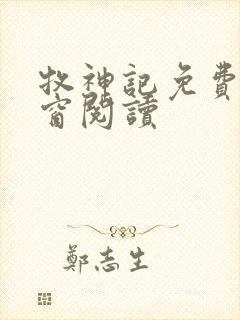 牧神記免費
窗閱讀
鄭志生